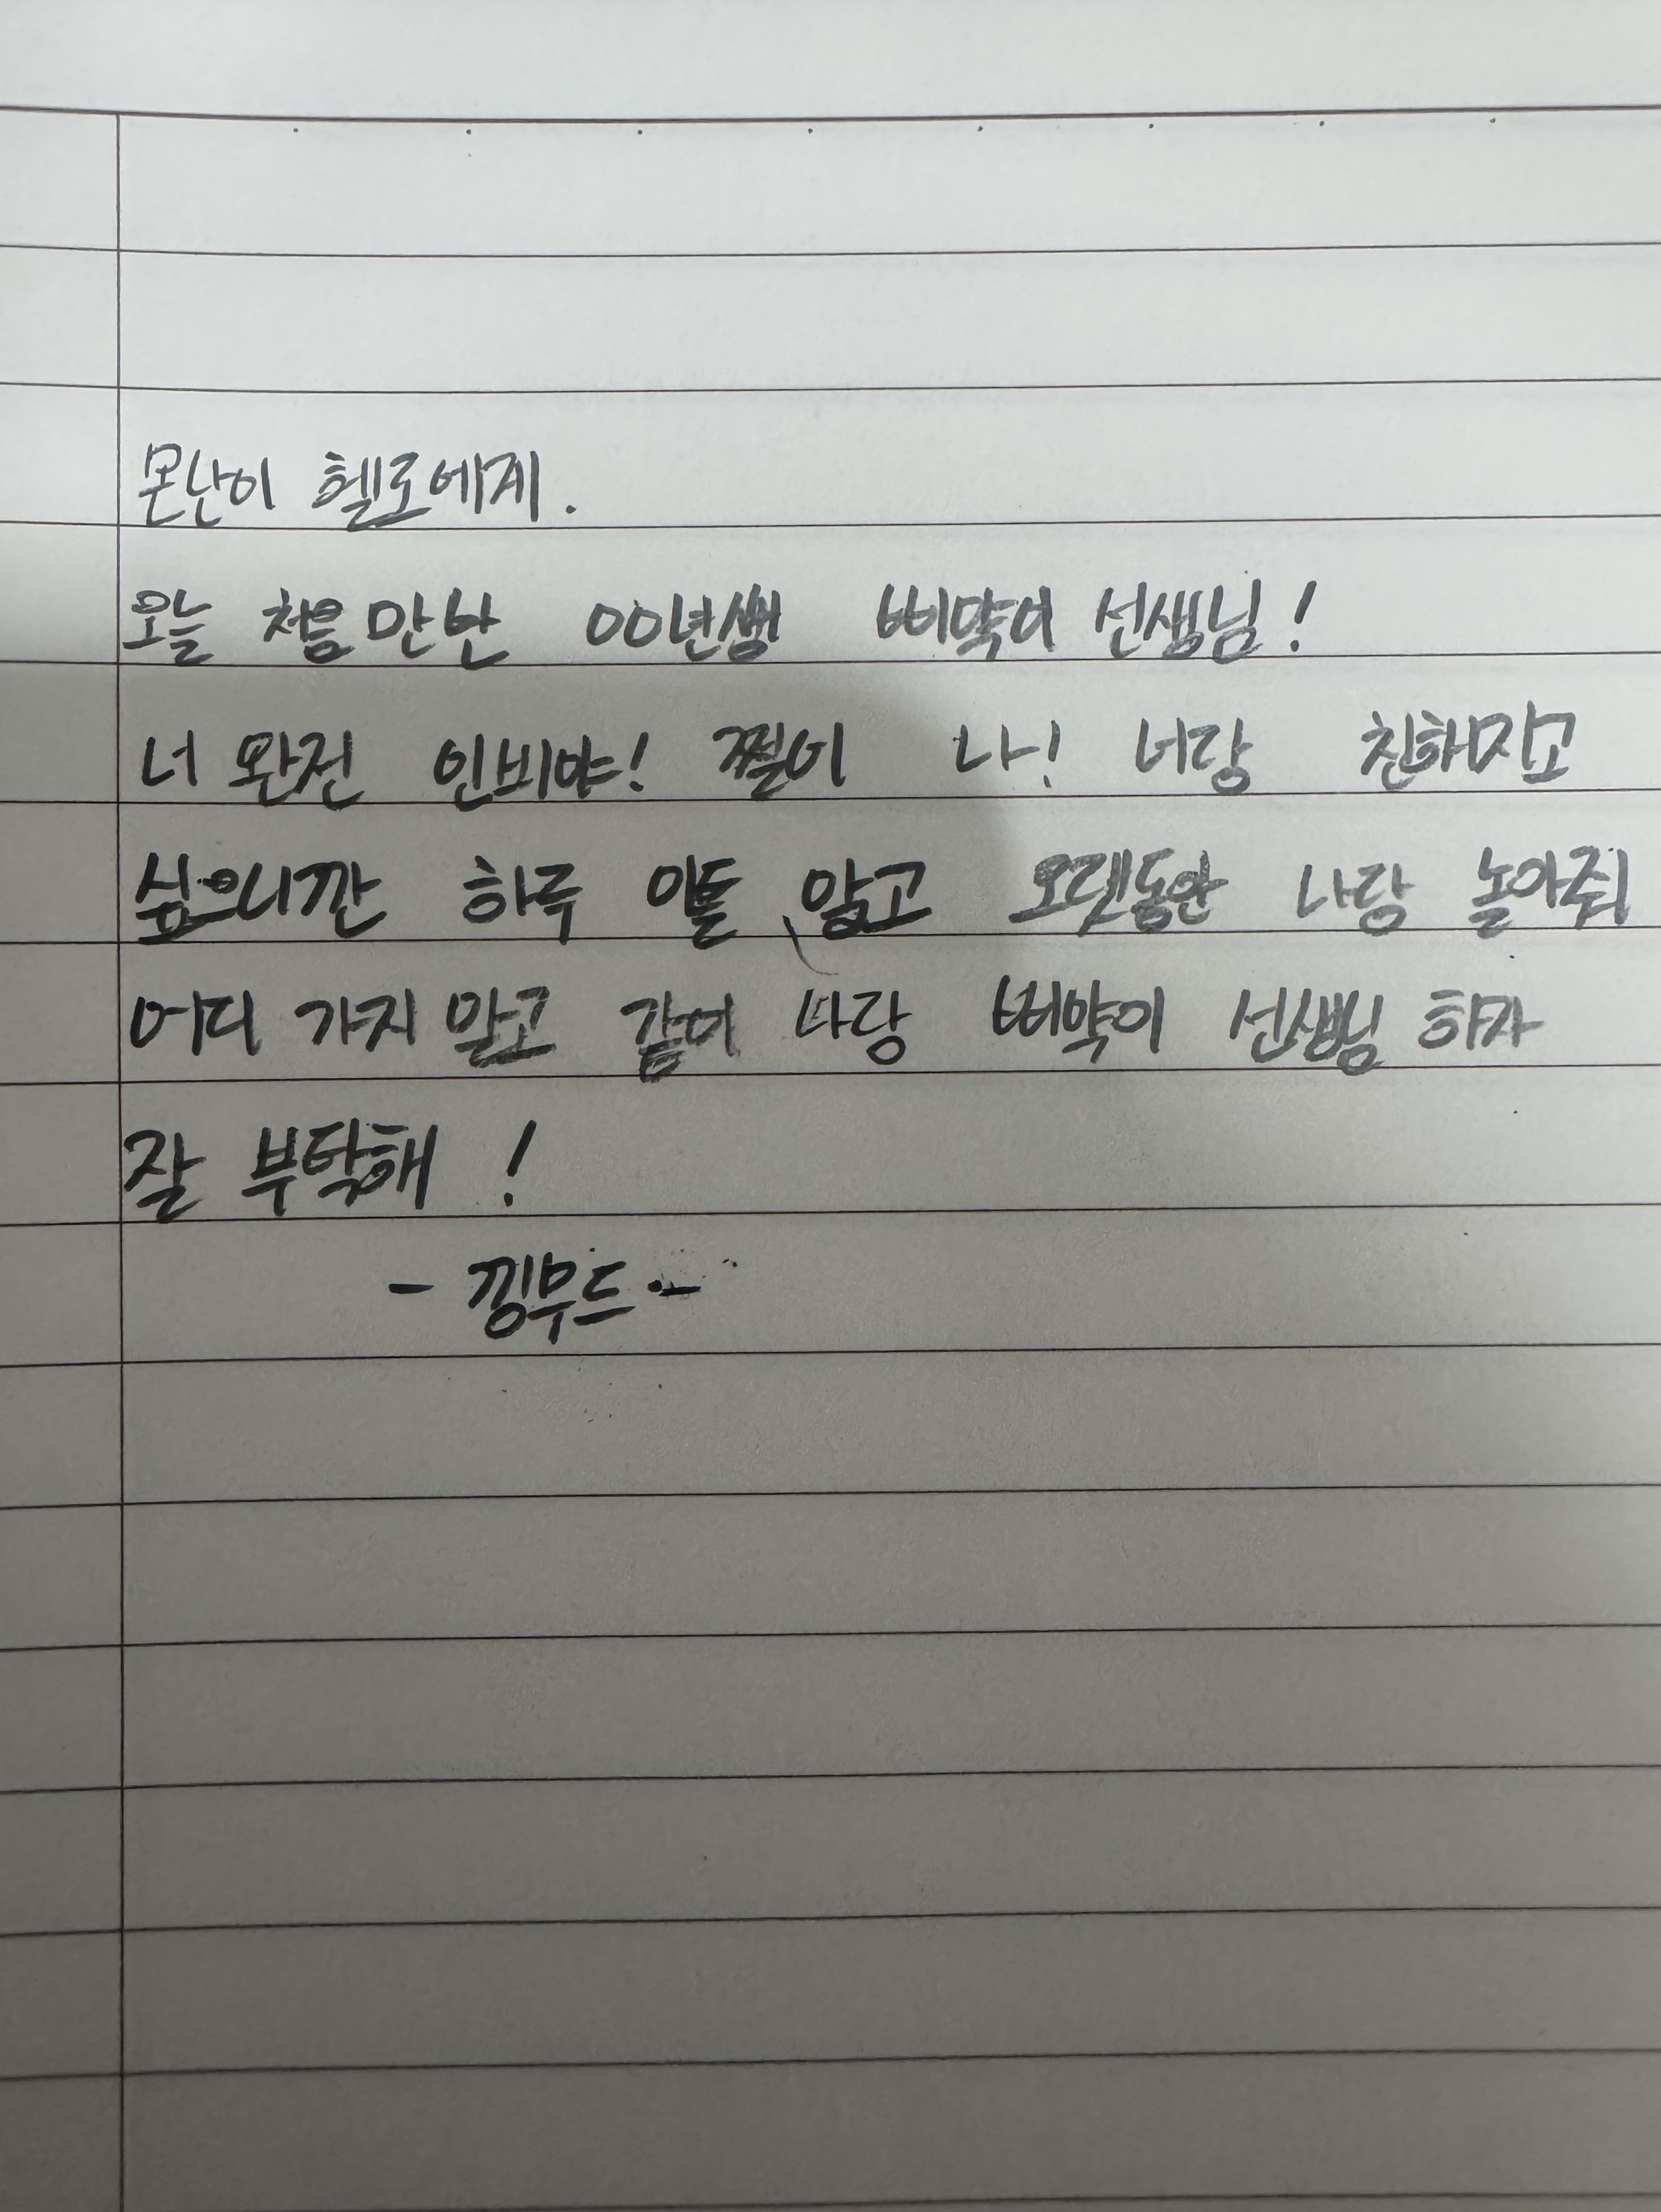 못난이 헬로에게.
오늘 처음 만난 00년생 삐약이 선생님!
너 완전 인비야! 쩔이 나! 너랑 친해지고
싶으니깐 하루 이틀 말고 오랫동안 나랑 놀아줘
어디 가지 말고 같이 나랑 삐약이 선생님 하자
잘 부탁해!
- 낑무드 -